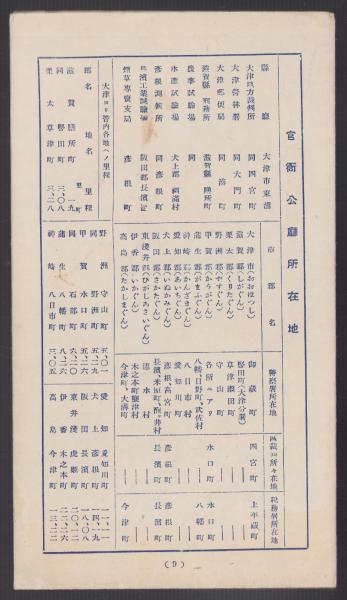 官衙公廳所在地
縣廳 大津市東浦
大津地方裁判所 同四宮町
大津營林署 同大門町
大津郵便局 同湊町
滋賀縣刑務所 滋賀縣膳所町
農事試驗場 同
水產試驗場 犬上郡福滿村
彥根測候所 同彥根町
長濱工業試驗場 阪田郡長濱町
煙草專賣支局 彥根町
市郡名
大津市(おおほつし)
滋賀郡(しがぐん)
栗太郡(くりたぐん)
野洲郡(やすぐん)
甲賀郡(かうがぐん)
蒲生郡(がまふぐん)
神崎郡(かんざきぐん)
愛知郡(あいちぐん)
犬上郡(いぬかみぐん)
阪田郡(さかたぐん)
東淺井郡(ひがしあさいぐん)
伊香郡(いかぐん)
高島郡(たかしまぐん)
警察署所在地
御藏町
堅田町(大津分署)
草津町
守山町
水口町
八幡町、日野町
八日市町
愛知川町
彥根町、高宮町
長濱町、米原町
速水村
木之本町
今津町、大溝町
區裁判所々在地
四宮町
水口町
彥根町
長濱町
稅務署所在地
上平藏町
水口町
八幡町
彥根町
長濱町
今津町
大津ヨリ管內各地ヘノ里程
郡名 地名 里程
滋賀 膳所町 一九
同 堅田町 三、〇八
栗太 草津町 三、二八
野洲 守山町 五、〇一
同 野洲町 五、二九
甲賀 水口町 八、二六
同 石部町 六、二〇
蒲生 八幡町 八、二六
神崎 八日市町
愛知 愛知川町
犬上 彥根町 一四、一九
阪田 長濱町 一八、〇八
東井淺 虎姬町 二〇、一二
伊香 木之本町 二二、二六
高島 今津町 一三、二二
(9)